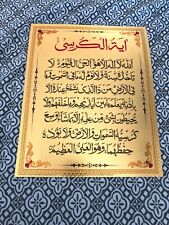 آية الكرسي
الله لا إله إلا هو الحي القيوم لا
تأخذه سنة ولا نوم له ما في السموت وما
في الأرض من ذا الذي يشفع عنده إلا
بإذنه يعلم ما بين أيديهم وما خلفهم ولا
يحيطون بشيء من علمه إلا بما شاء وسع
كرسيه السموت والأرض ولا يؤده
حفظهما وهو العلي العظيم